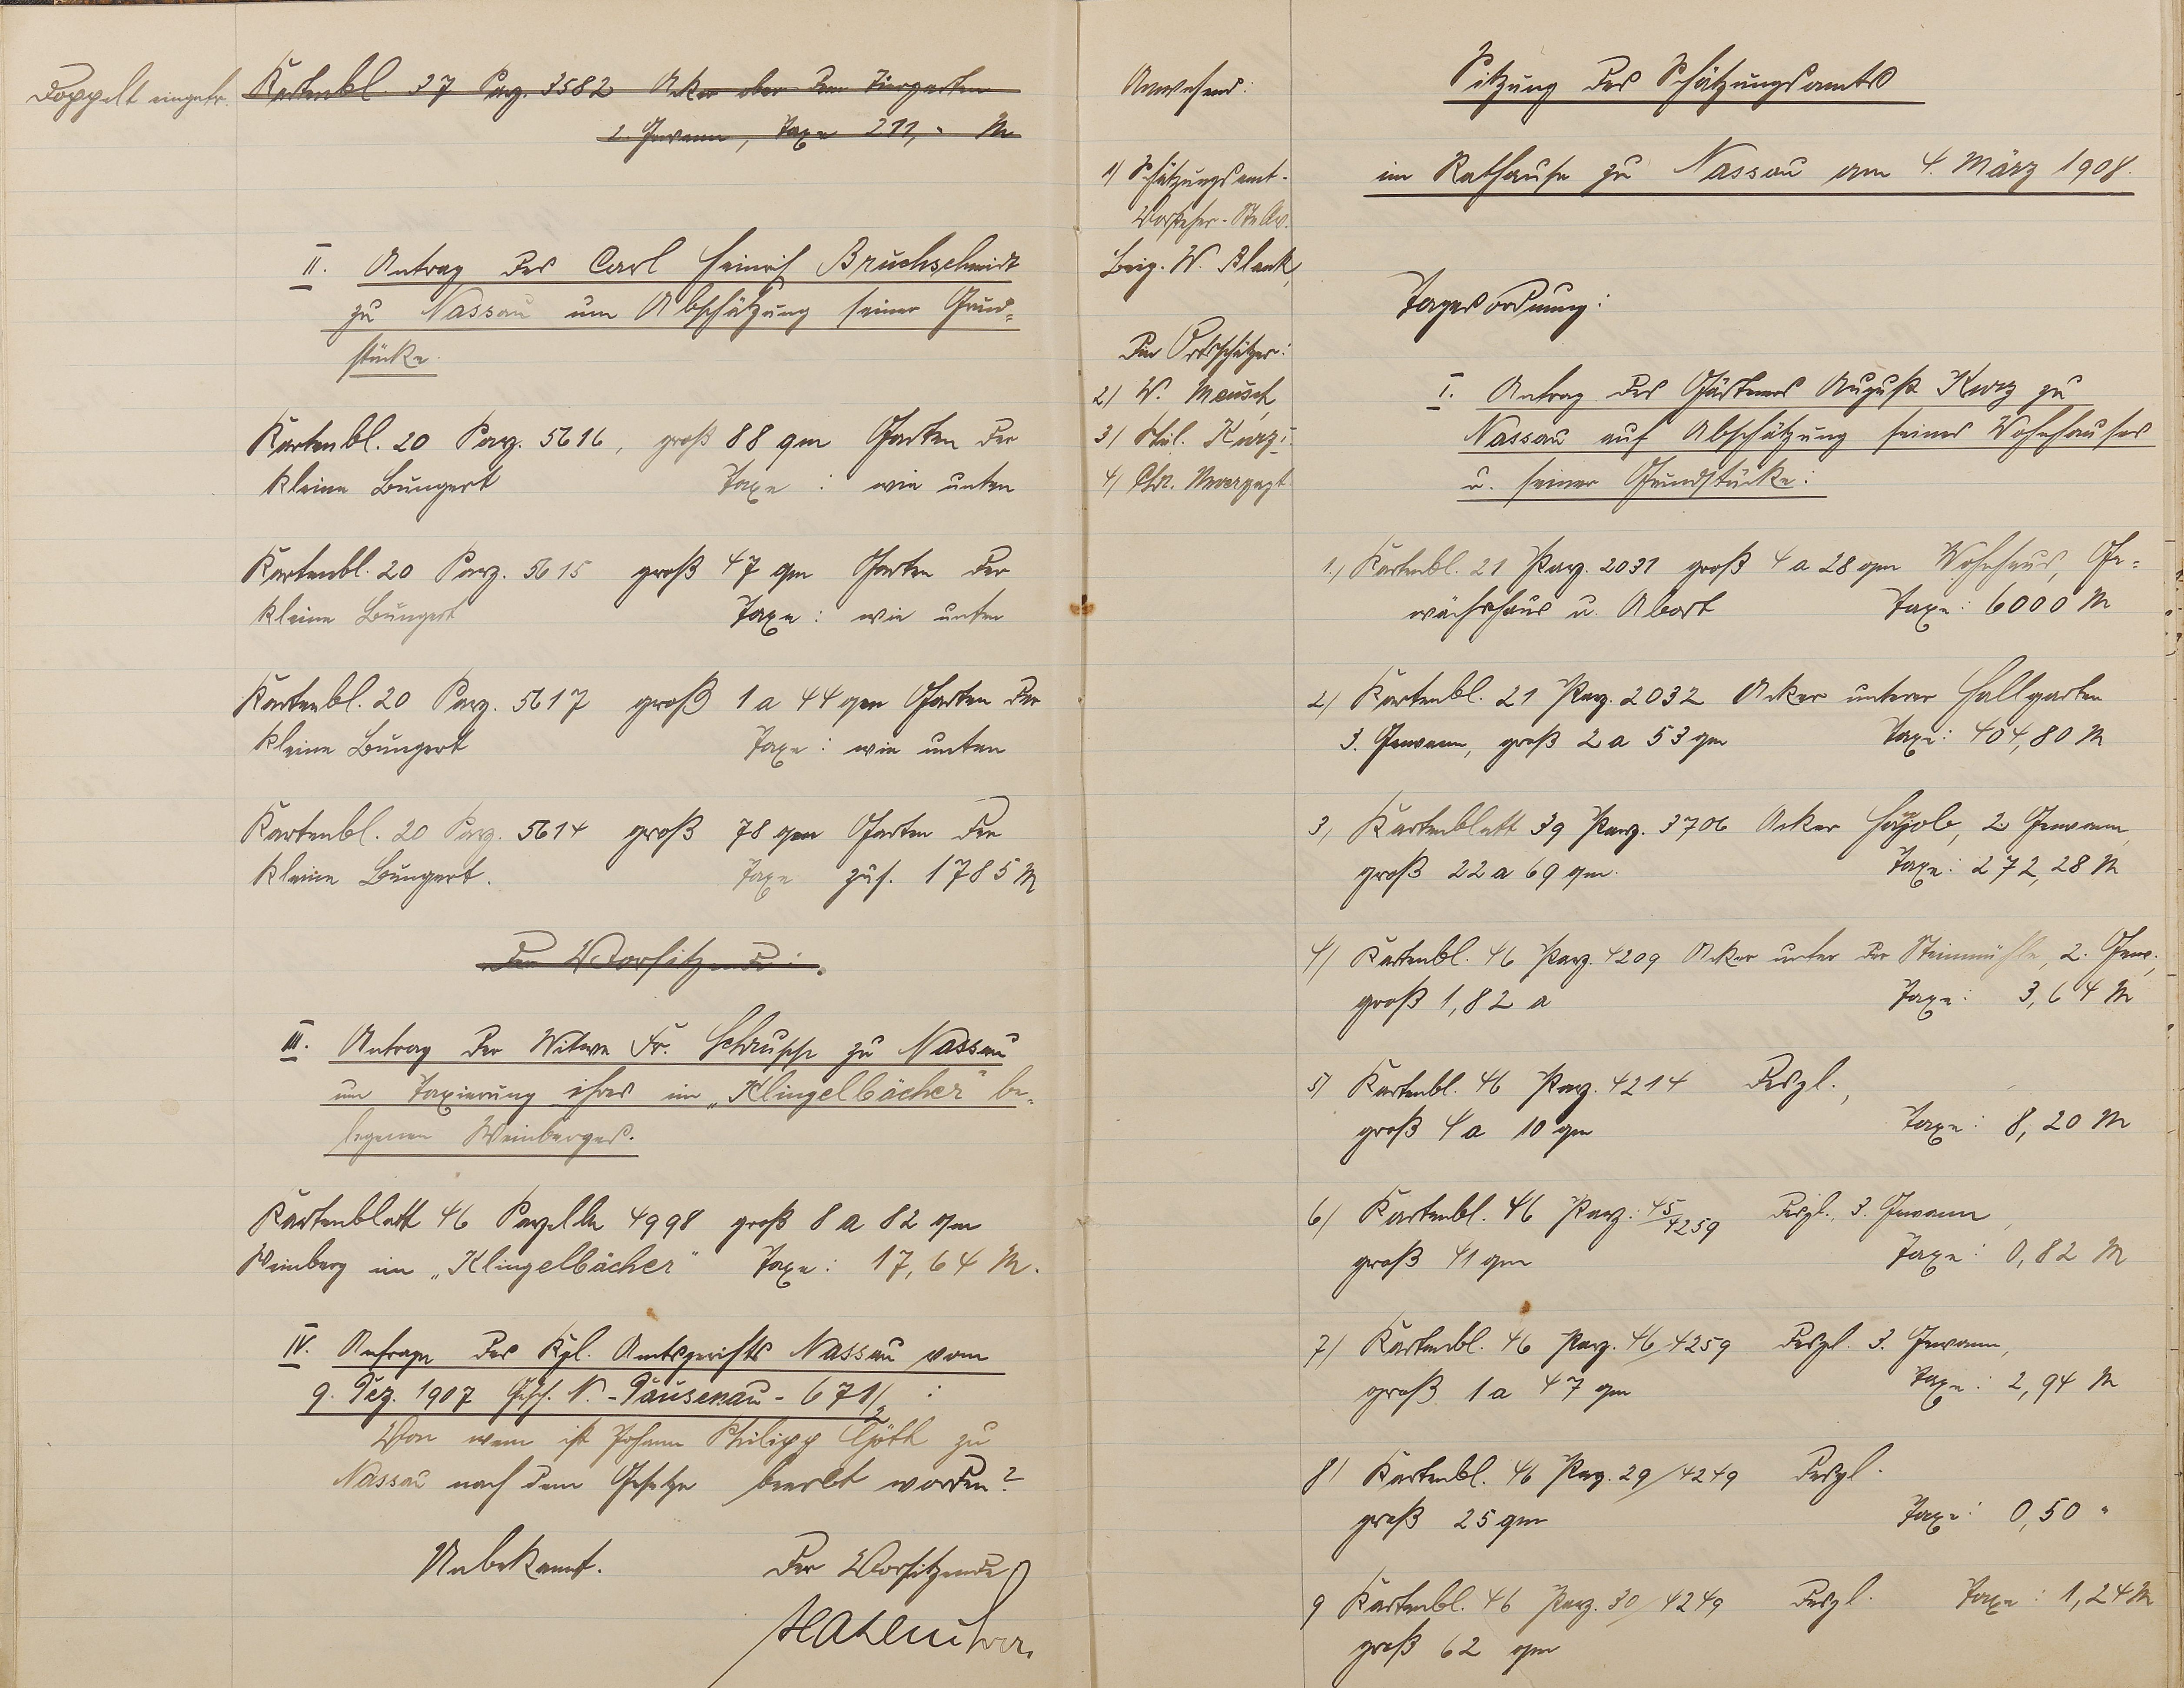 Doppelt eingetr.
Kartenbl. 37 Parz. 3582 Acker ober dem Tiergarten
2. Gewann, Taxe 211,- M
II. Antrag des Carl Heinrich Bruchschmidt
zu Nassau um Abschätzung seiner Grund-
stücke.
Kartenbl. 20 Parz. 5616, groß 88 qm Garten der
kleine Bungert Taxe : wie unten
Kartenbl. 20 Parz. 5615 groß 47 qm Garten der
kleine Bungert Taxe : wie unten
Kartenbl. 20 Parz. 5617 groß 1 a 44 qm Garten der
kleine Bungert Taxe : wie unten
Kartenbl. 20 Parz. 5614 groß 78 qm Garten der
kleine Bungert. Taxe zus. 1785 M
Der Vorsitzende:
III. Antrag der Witwe Fr. Schrupp zu Nassau
um Taxierung ihres im „Klingelbächer" be-
legenen Weinberges.
Kartenblatt 46 Parzelle 4998 groß 8 a 82 qm
Weinberg im „Klingelbächer" Taxe : 17,64 M.
IV. Anfrage des Kgl. Amtsgerichts Nassau vom
9. Dez. 1907 Gesch. N. - Dausenau - 671/2 :
Von wem ist Johann Philipp zu
Nassau nach dem Gesetze beerbt worden?
Unbekannt. Der Vorsitzende
Anwesend:
1) Schätzungsamt-
Vorsteher-Stellv.
Beig. W. Blank,
Die Ortsschätzer:
2) W. Meusch,
3) Phil. Kurz I.
4) Chr. Unverzagt
Sitzung des Schätzungsamts
im Rathause zu Nassau am 4. März 1908.
Tagesordnung:
I. Antrag des Gärtners August Kurz zu
Nassau auf Abschätzung seines Wohnhauses
u. seiner Grundstücke:
1.) Kartenbl. 21 Parz. 2031 groß 4 a 28 qm Wohnhaus, Ge-
wächshaus u. Abort Taxe: 6000 M
2) Kartenbl. 21 Parz. 2032 Acker unterer Hallgarten
3. Gewann, groß 2 a 53 qm Taxe: 404,80 M
3) Kartenblatt 39 Parz. 3706 Acker 2. Gewann,
groß 22 a 69 qm. Taxe: 272,28 M
4) Kartenbl. 46 Parz. 4209 Acker unter der Steinmühle, 2. Gew.,
groß 1,82 a Taxe: 3,64 M
5) Kartenbl. 46 Parz. 4214 Desgl.,
groß 4 a 10 qm Taxe: 8,20 M
6) Kartenbl. 46 Parz. 45/4259 Desgl., 3. Gewann,
groß 41 qm Taxe: 0,82 M
7) Kartenbl. 46 Parz. 46/4259 Desgl. 3. Gewann,
groß 1 a 47 qm Taxe: 2,94 M
8) Kartenbl. 46 Parz. 29/4249 Desgl.
groß 25 qm Taxe: 0,50 "
9 Kartenbl. 46 Parz. 30/4249 Desgl. Taxe: 1,24 M
groß 62 qm